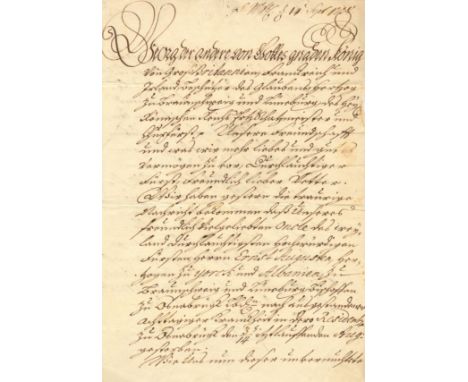 Georg der andere von Gottes gnaden König
von Großbritannien Franckreich und
Irland beschützer des Glaubens Hertzog
zu Braunschweig und Lüneburg des Heil.
Römischen Reichs Ertzschatzmeister und
Churfürst. Unsere Freundschafft
und was wir mehr liebes und gutes
vermögen zuvor, Durchlauchtiger
Fürst, freundlich lieber Vetter.
Wir haben gestern die traurige
Nachricht bekommen daß Unseres
freundlich vielgeliebten Oncle des wey-
land Durchlauchtigsten Hochwürdigen
Fürsten Herrn Ernst Augusten, Her-
zogen zu Yorck und Albanien, zu
Braunschweig und Lüneburg Bischoffen
zu Osnabrück nach ausgestandener
Achttägiger Kranckheit in dero Residentz
zu Osnabrück den 14 Aug.
gestorben.
Wie Uns nun dieser